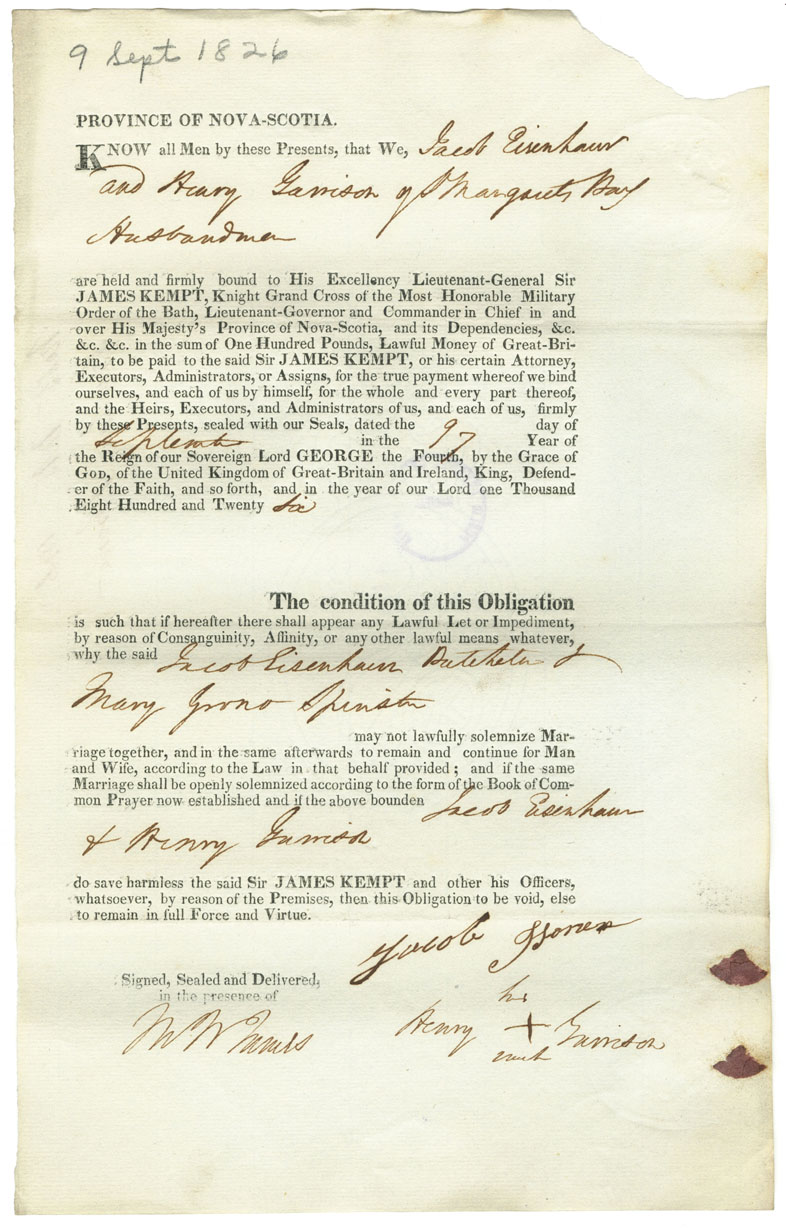 9 Sept 1826
PROVINCE OF NOVA-SCOTIA.
KNOW all Men by these Presents, that We, Jacob Eisenhaur
and Henry Garrison of St Margrets Bay
Husbandmen
are held and firmly bound to His Excellency Lieutenant-General Sir
JAMES KEMPT, Knight Grand Cross of the Most Honorable Military
Order of the Bath, Lieutenant-Governor and Commander in Chief in and
over His Majesty's Province of Nova-Scotia, and its Dependencies, &c.
&c. &c. in the sum of One Hundred Pounds, Lawful Money of Great-Bri-
tain, to be paid to the said Sir JAMES KEMPT, or his certain Attorney,
Executors, Administrators, or Assigns, for the true payment whereof we bind
ourselves, and each of us by himself, for the whole and every part thereof,
and the Heirs, Executors, and Administrators of us, and each of us, firmly
by these Presents, sealed with our Seals, dated the 9 day of
September in the Year of
the Reign of our Sovereign Lord GEORGE the Fourth, by the Grace of
GOD, of the United Kingdom of Great-Britain and Ireland, King, Defend-
er of the Faith, and so forth, and in the year of our Lord one Thousand
Eight Hundred and Twenty Six
The condition of this Obligation
is such that if hereafter there shall appear any Lawful Let or Impediment,
by reason of Consanguinity, Affinity, or any other lawful means whatever,
why the said Jacob Eisenhaur Batchelor &
Mary Grono Spinster
may not lawfully solemnize Mar-
riage together, and in the same afterwards to remain and continue for Man
and Wife, according to the Law in that behalf provided; and if the same
Marriage shall be openly solemnized according to the form of the Book of Com-
mon Prayer now established and if the above bounden Jacob Eisenhaur
& Henry Garrison
do save harmless the said Sir JAMES KEMPT and other his Officers,
whatsoever, by reason of the Premises, then this Obligation to be void, else
to remain in full Force and Virtue.
Jacob
Signed, Sealed and Delivered,
in the presence of
his
Henry + Garrison
mark